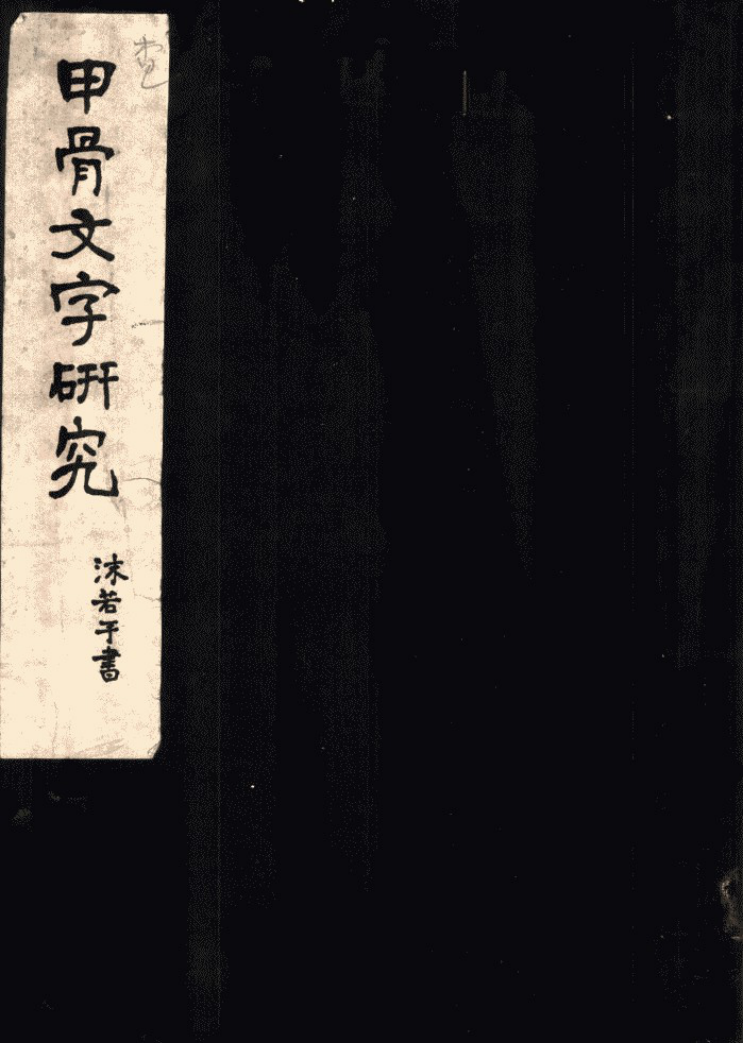 甲骨文字研究
沫若手書